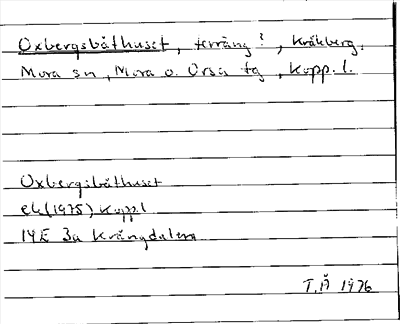 Oxbergsbåthuset, terräng?, Kråkberg.
Mora sn, Mora o. Orsa tg, Kopp. l.
Oxbergsbåthuset
ek (1975) Koppl
14E 3a Krångdalen
T.Å 1976